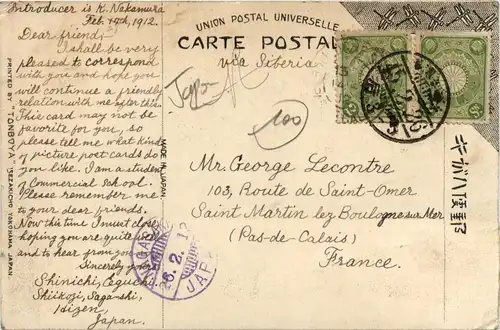 Introducer is K. Nakamura
Feb. 14th, 1912.
Dear friend,
I shall be very
pleased to correspond
with you and hope you
will continue a friendly
relation with me after this.
This card may not
favorite for you, so
please tell me what kind
of picture post cards do
you like. I am a student
of Commercial School.
Please remember me
to your dear friends.
Now this time I must close
hoping you are quite
and to hear from you
Sincerely yours
Shinichi, Eguchi
Shiikozi, Saga-shi,
Hizen,
Japan.
PRINTED BY TONBOYA ISEZAKICHO YOKOHAMA JAPAN
MADE IN JAPAN
UNION POSTAL UNIVERSELLE
CARTE POSTAL
via Siberia
Japon
100
Mr. George Lecontre
103, Route de Saint-Omer
Saint Martin lez Boulogne sur Mer
(Pas-de-Calais)
France.
26.2.12
JAPA